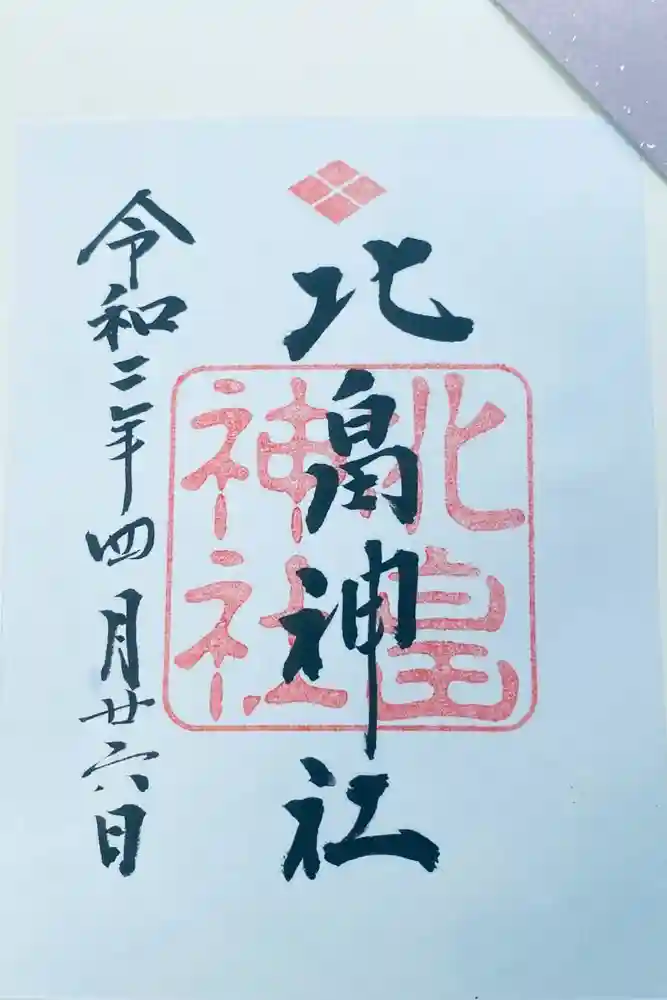 北畠神社
北畠
神社
令和三年四月廿六日